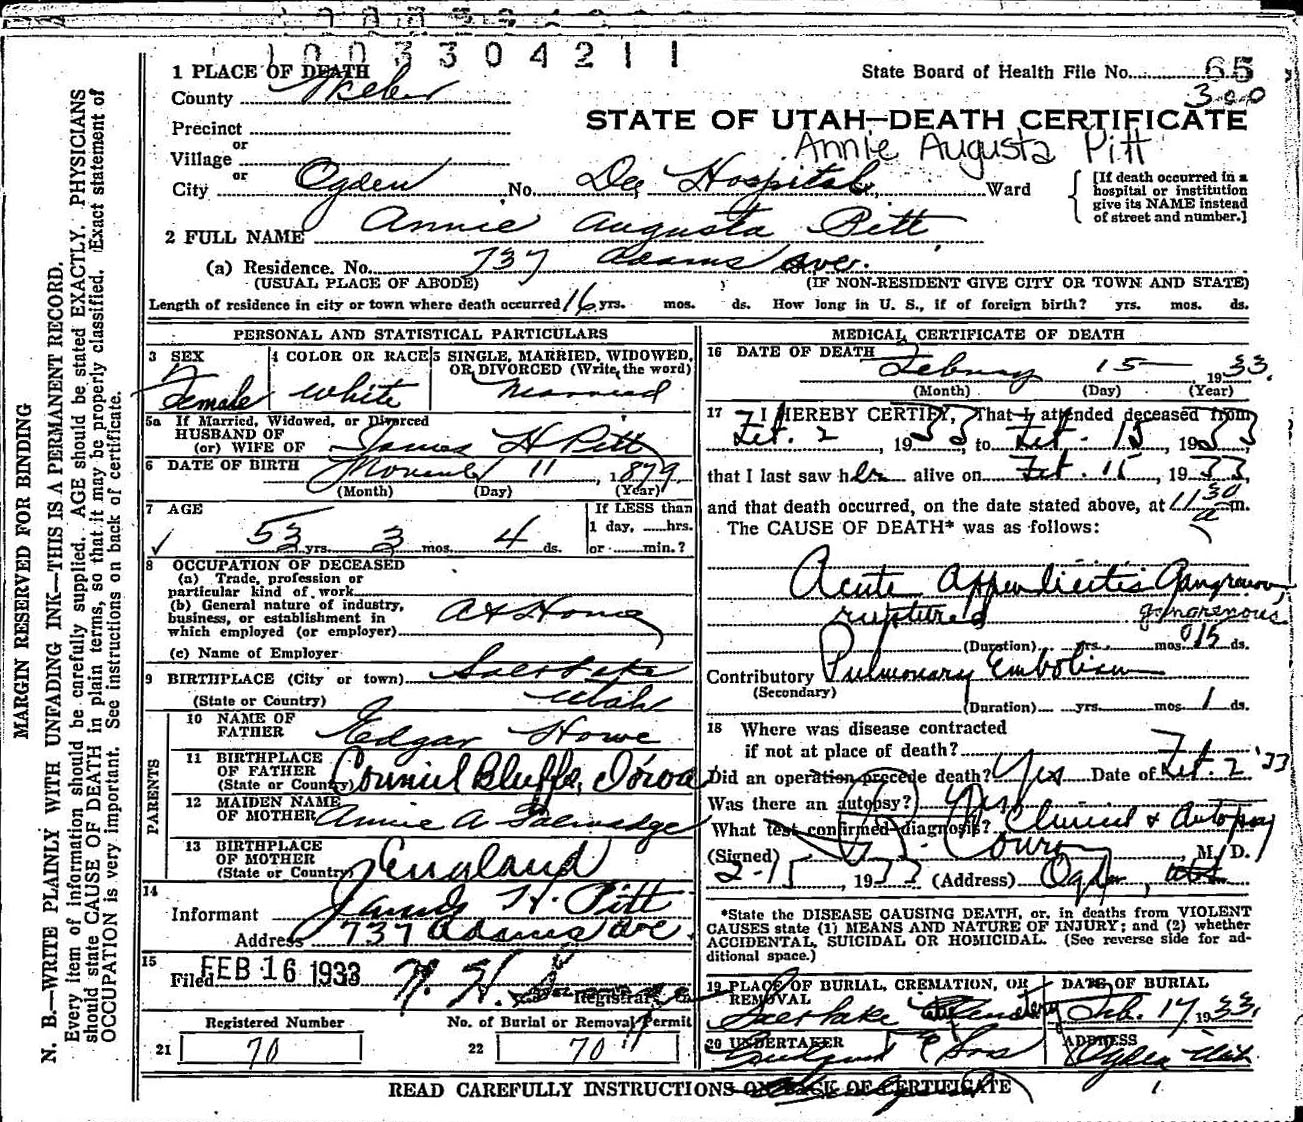 1003304211
1 PLACE OF DEATH
State Board of Health File No. 65
300
County Weber
STATE OF UTAH—DEATH CERTIFICATE
Precinct
or
Annie Augusta Pitt
Village
or
City Ogden No. Dee Hospital, Ward
[If death occurred in a
hospital or institution
give its NAME instead
of street and number.]
2 FULL NAME Annie Augusta Pitt
(a) Residence. No. 737 Adams Ave.
(USUAL PLACE OF ABODE) (IF NON-RESIDENT GIVE CITY OR TOWN AND STATE)
Length of residence in city or town where death occurred 16 yrs. mos. ds. How long in U. S., if of foreign birth? yrs. mos. ds.
PERSONAL AND STATISTICAL PARTICULARS
3 SEX
Female
4 COLOR OR RACE
White
5 SINGLE, MARRIED, WIDOWED,
OR DIVORCED (Write the word)
Married
5a If Married, Widowed, or Divorced
HUSBAND OF
(or) WIFE OF James H Pitt
6 DATE OF BIRTH November 11, 1879
(Month) (Day) (Year)
7 AGE
53 yrs. 3 mos. 4 ds.
If LESS than
1 day, ......hrs.
or ......min.?
8 OCCUPATION OF DECEASED
(a) Trade, profession or
particular kind of work
(b) General nature of industry,
business, or establishment in
which employed (or employer) At Home
(c) Name of Employer
9 BIRTHPLACE (City or town) Salt Lake
(State or Country) Utah
PARENTS
10 NAME OF
FATHER Edgar Howe
11 BIRTHPLACE
OF FATHER
(State or Country) Council Bluffs, Iowa
12 MAIDEN NAME
OF MOTHER Annie A Talmadge
13 BIRTHPLACE
OF MOTHER
(State or Country) England
14
Informant James H. Pitt
Address 737 Adams Ave.
15
Filed FEB 16 1933
Registrar
Registered Number
21 70
No. of Burial or Removal Permit
22 70
MEDICAL CERTIFICATE OF DEATH
16 DATE OF DEATH
February 15 1933.
(Month) (Day) (Year)
17 I HEREBY CERTIFY, That I attended deceased from
Feb. 2, 1933 to Feb. 15, 1933
that I last saw her alive on Feb. 15, 1933,
and that death occurred, on the date stated above, at 11 30 a m.
The CAUSE OF DEATH* was as follows:
Acute Appendicitis Gangrenous,
ruptured gangrenous
(Duration) yrs. mos. 15 ds.
Contributory Pulmonary Embolism
(Secondary)
(Duration) yrs. mos. 1 ds.
18 Where was disease contracted
if not at place of death?
Did an operation precede death? Yes Date of Feb. 2 '33
Was there an autopsy? Yes
What test confirmed diagnosis? Clinical & Autopsy
(Signed) M. D.
2-15, 1933 (Address) Ogden, Utah
*State the DISEASE CAUSING DEATH, or, in deaths from VIOLENT
CAUSES state (1) MEANS AND NATURE OF INJURY; and (2) whether
ACCIDENTAL, SUICIDAL OR HOMICIDAL. (See reverse side for ad-
ditional space.)
19 PLACE OF BURIAL, CREMATION, OR
REMOVAL
Salt Lake City Cemetery
DATE OF BURIAL
Feb. 17, 1933.
20 UNDERTAKER
& Sons
ADDRESS
Ogden Utah
READ CAREFULLY INSTRUCTIONS ON BACK OF CERTIFICATE
MARGIN RESERVED FOR BINDING
N. B.—WRITE PLAINLY WITH UNFADING INK—THIS IS A PERMANENT RECORD.
Every item of information should be carefully supplied. AGE should be stated EXACTLY. PHYSICIANS
should state CAUSE OF DEATH in plain terms, so that it may be properly classified. Exact statement of
OCCUPATION is very important. See instructions on back of certificate.